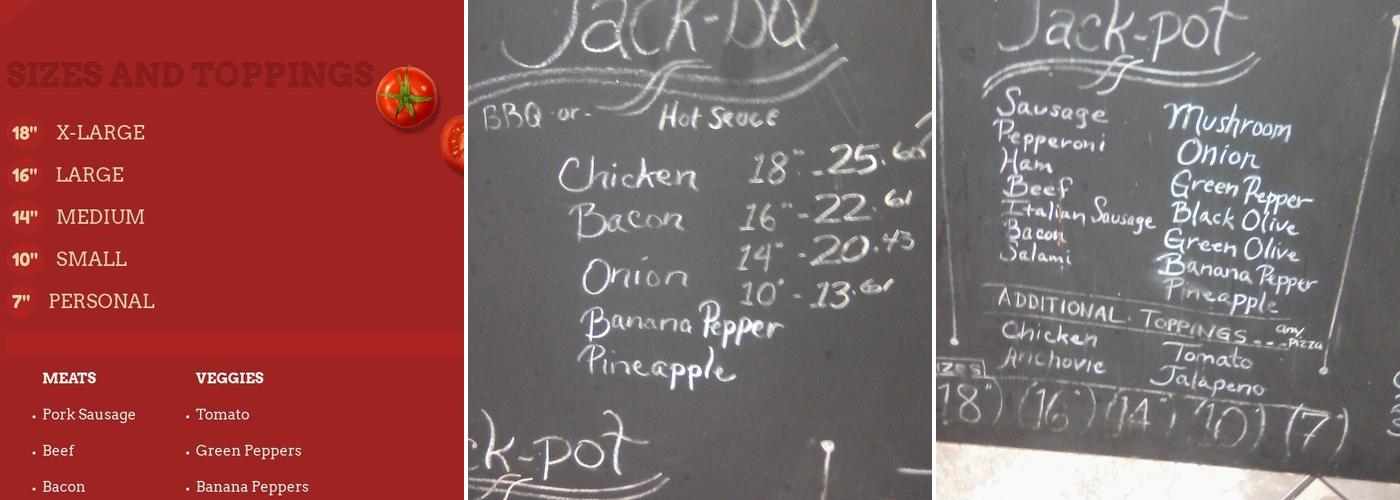 SIZES AND TOPPINGS
18" X-LARGE
16" LARGE
14" MEDIUM
10" SMALL
7" PERSONAL
MEATS VEGGIES
• Pork Sausage • Tomato
• Beef • Green Peppers
• Bacon • Banana Peppers
Jack-BQ
BBQ -or- Hot Sauce
Chicken 18" - 25.60
Bacon 16" - 22.61
Onion 14" - 20.43
Banana Pepper 10" - 13.61
Pineapple
ck-pot
Jack-pot
Sausage Mushroom
Pepperoni Onion
Ham Green Pepper
Beef Black Olive
Italian Sausage Green Olive
Bacon Banana Pepper
Salami Pineapple
ADDITIONAL TOPPINGS... any Pizza
Chicken Tomato
Anchovie Jalapeno
IZES
18" (16") (14") (10") (7")